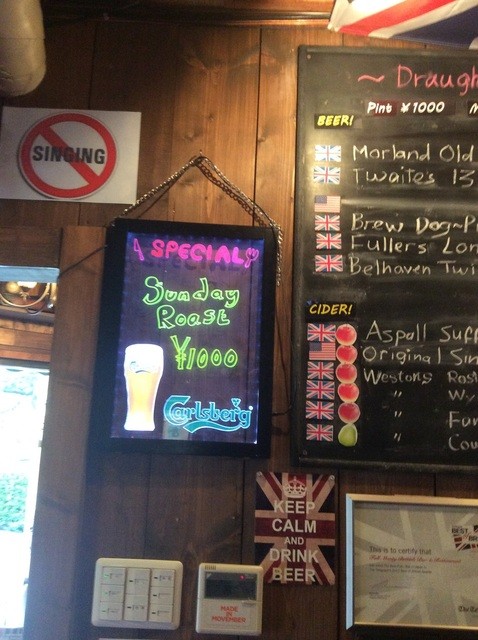 ~ Draugh
Pint ¥1000
BEER!
SINGING
Morland Old
Twaites 13
SPECIAL
Brew Dog-P
Fullers Lon
Belhaven Twi
Sunday
Roast
¥1000
CIDER!
Aspall Suff
Original Sin
Westons Ros
" Wy
" Fu
" Cou
Carlsberg
KEEP
CALM
AND
DRINK
BEER
BEST
BR
This is to certify that
MADE IN
NOVEMBER